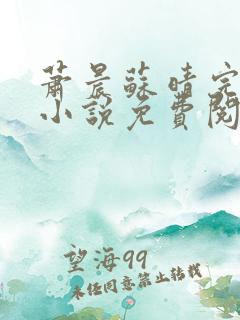 蕭晨蘇晴完
小說免費閱
望海99
未经同意禁止转载